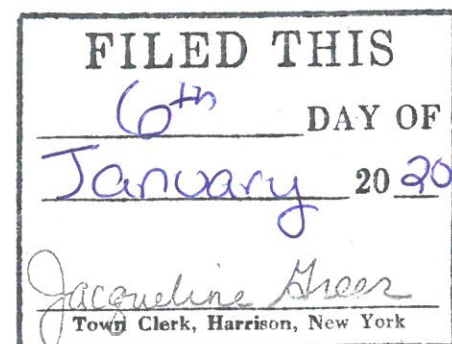 FILED THIS
6th DAY OF
January 20 20
Jacqueline Greer
Town Clerk, Harrison, New York